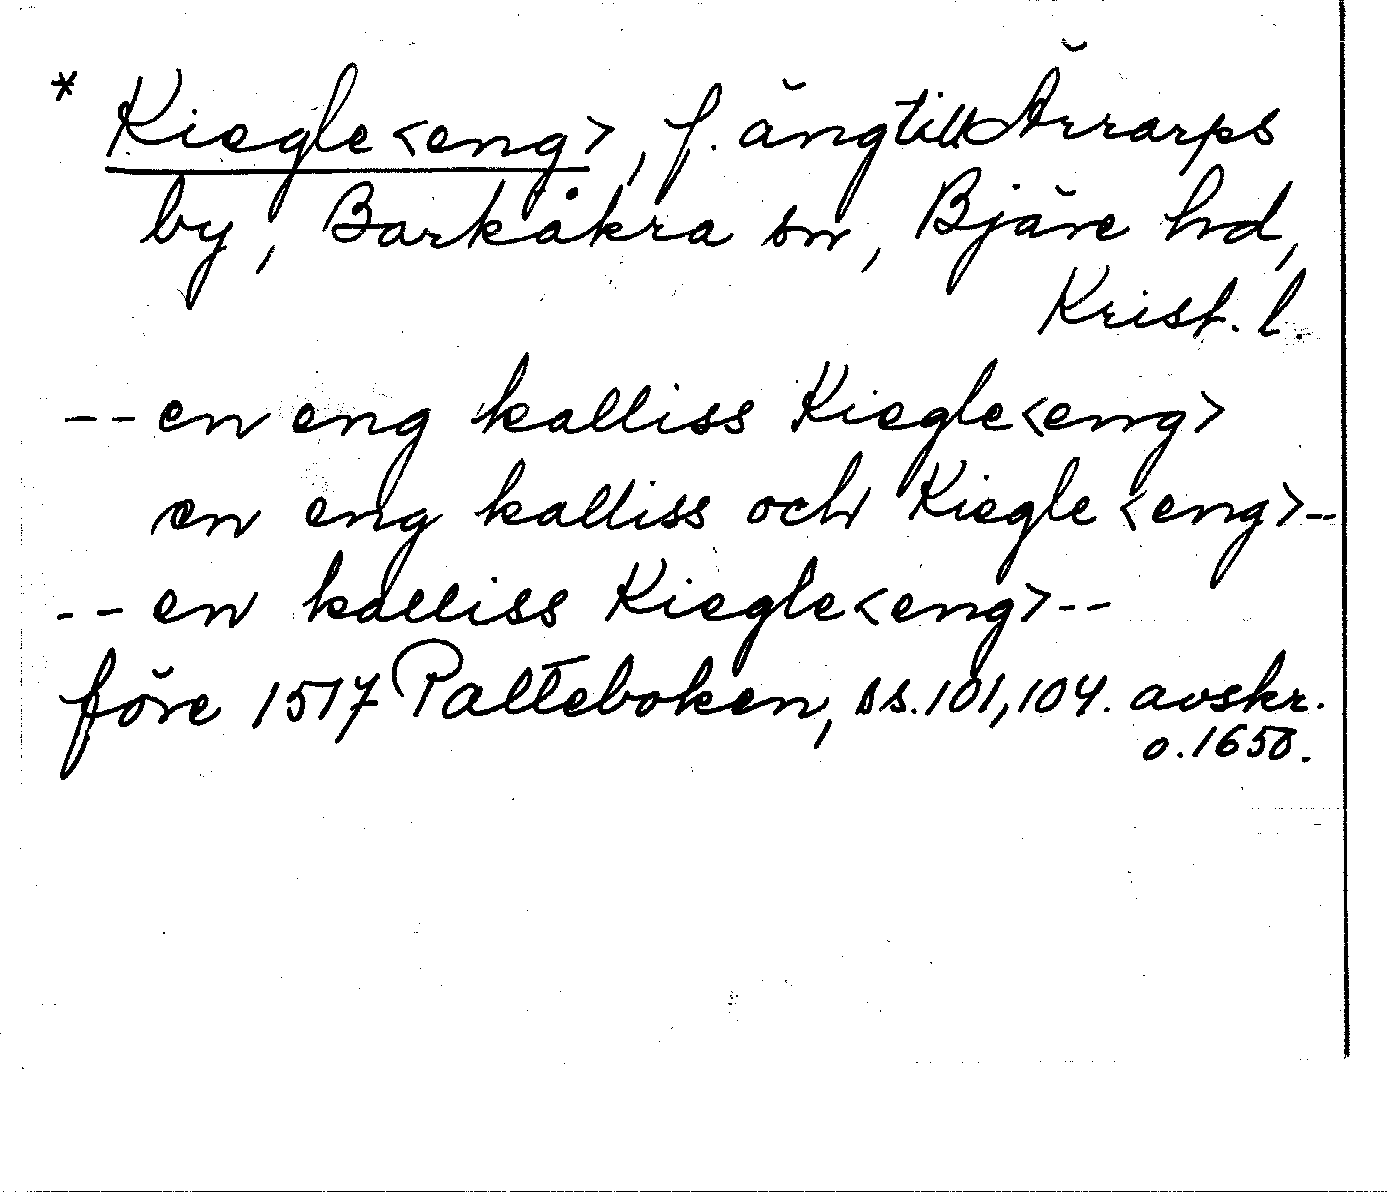 * Kiegle<eng>, f. äng till Ärrarps
by, Barkåkra sn, Bjäre hd,
Krist. l.
-- en eng kalliss Kiegle<eng>
en eng kalliss och Kiegle <eng> --
-- en kalliss Kiegle<eng> --
före 1517 Palteboken, ss. 101, 104. avskr.
o. 1650.